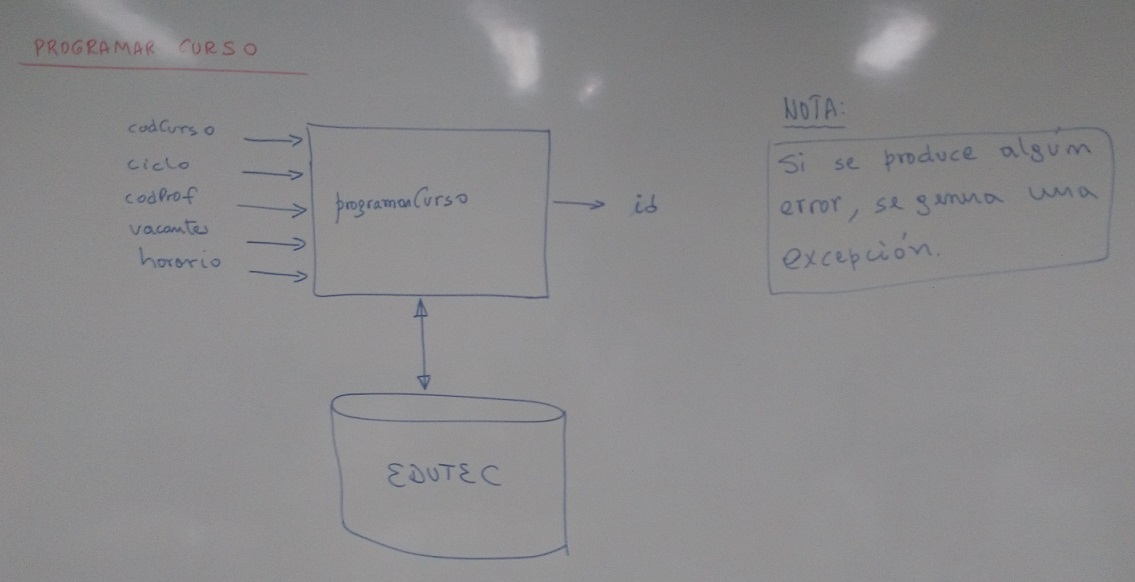 PROGRAMAR CURSO
codCurso
ciclo
codProf
vacantes
horario
programarCurso
id
EDUTEC
NOTA:
Si se produce algún
error, se genera una
excepción.